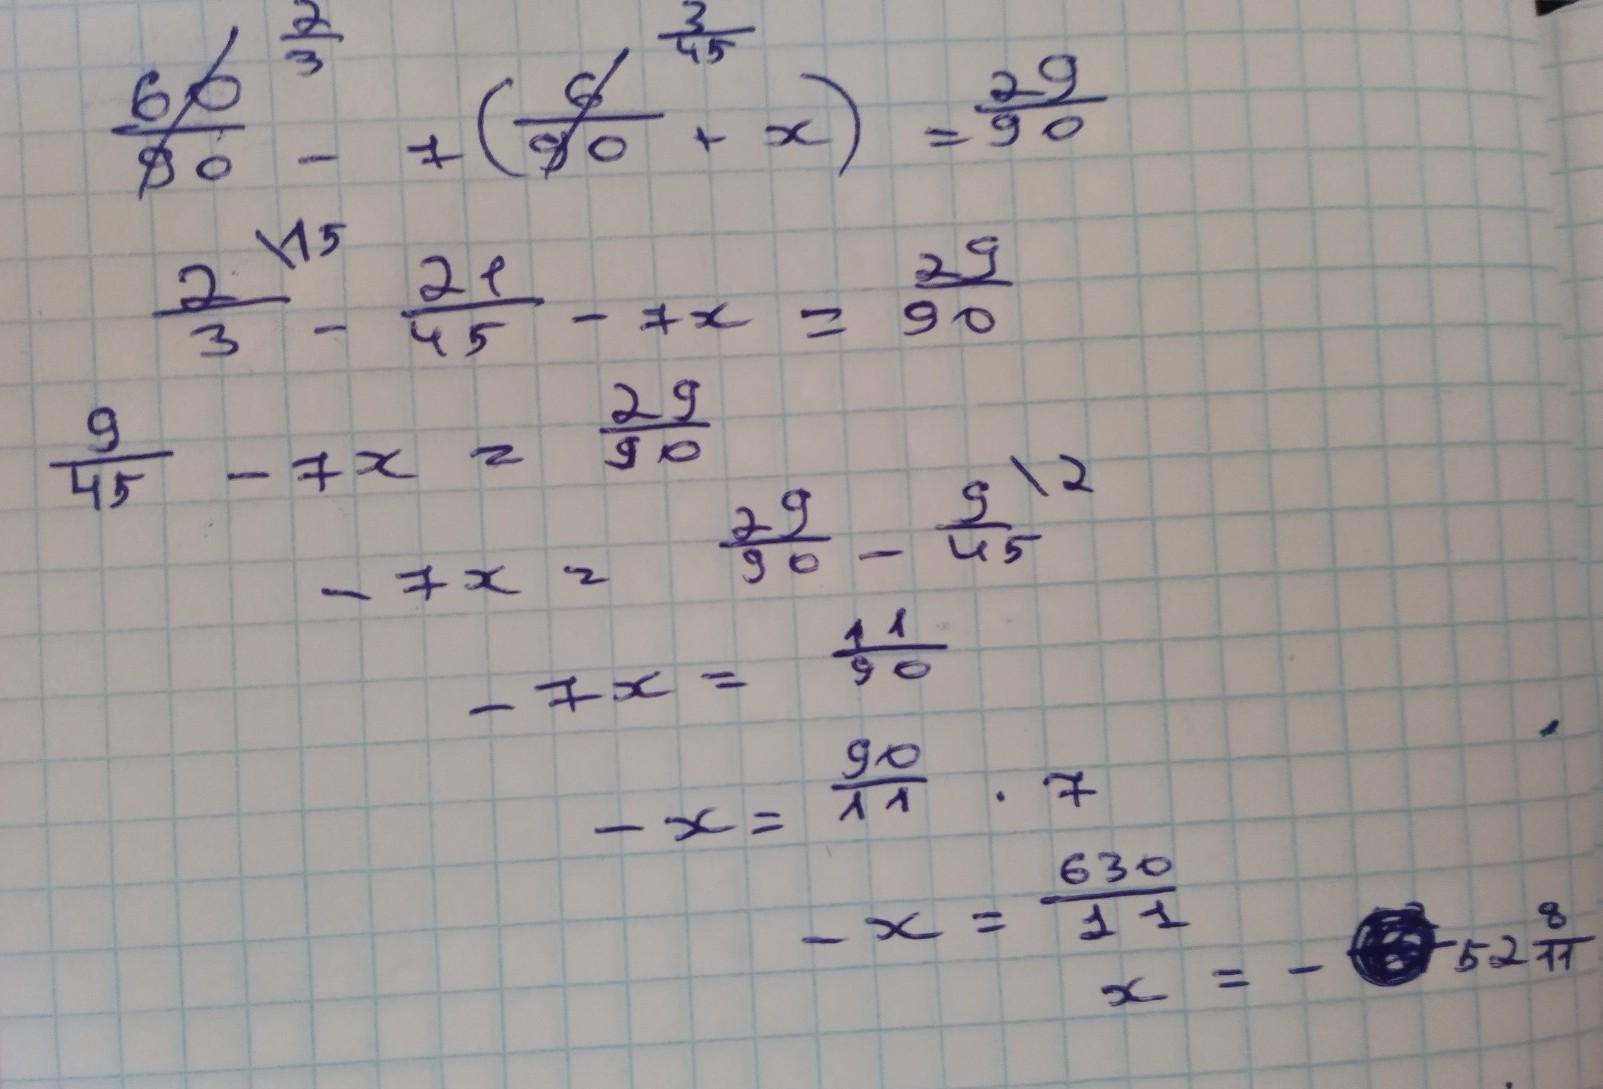 2/3 3/45
60/90 - 7(6/90 + x) = 29/90
2/3 \15 - 21/45 - 7x = 29/90
9/45 - 7x = 29/90
- 7x = 29/90 - 9/45 \2
- 7x = 11/90
- x = 90/11 · 7
- x = 630/11
x = - 52 8/11